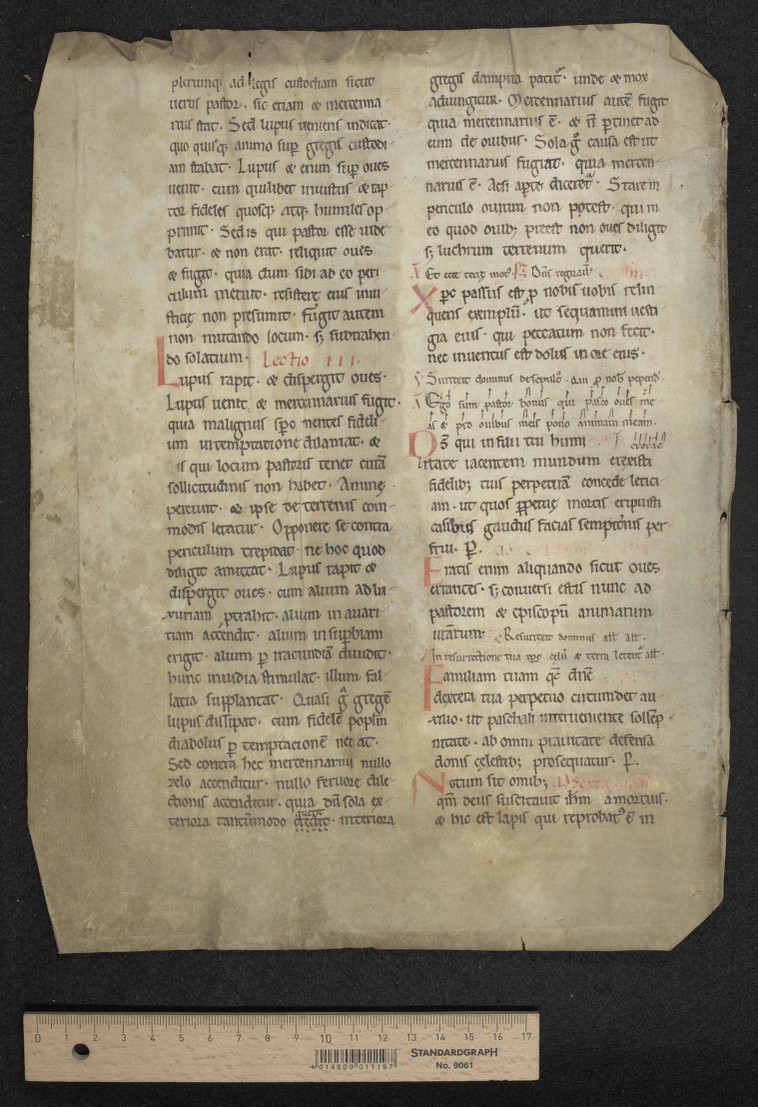 plerumq; ad gregis custodiam sicut
uerus pastor · sic etiam & mercenna
rius stat · Sed lupus ueniens indicat ·
quo quisq; animo sup̄ gregis custodi
am stabat · Lupus & enim sup̄ oues
uenit · cum quilibet iniustus & rap
tor fideles quosq; atq; humiles op
primit · Sed is qui pastor esse uide
batur · & non erat · reliquit oues
& fugit · quia dum sibi ab eo peri
culum metuit · resistere eius iniu
sticię non presumit · Fugit autem
non mutando locum · s; subtrahen
do solatium · Lectio III.
Lupus rapit · & dispergit oues ·
Lupus uenit & mercennarius fugit ·
quia malignus sp̄c mentes fideli
um in temptatione dilaniat · &
is qui locum pastoris tenet curā
sollicitudinis non habet · Animę
pereunt · & ipse de terrenis com
modis letatur · Opponere se contra
periculum trepidat · ne hoc quod
diligit amittat · Lupus rapit &
dispergit oues · cum alium ad lu
xuriam p̱trahit · alium in auari
tiam accendit · alium in sup̄biam
erigit · alium p̱ iracundiā diuidit ·
hunc inuidia stimulat · illum fal
lacia supplantat · Quasi g̊ gregē
lupus dissipat · cum fidelē popl̄m
diabolus p̱ temptacionē necat ·
Sed contra hec mercennarius nullo
zelo accenditur · nullo feruore dile
ctionis accenditur · quia dū sola ex
teriora tantūmodo querit · interiora
gregis dampna patit̃ · unde & mox
adiungitur · Mercennarius autē fugit
quia mercennarius ē · & n̄ p̱tinet ad
eum de ouibus · Sola g̊ causa est ut
mercennarius fugiat · quia mercen
narius ē · Acsi ap̱te diceret̃ · Stare in
periculo ouium non potest · qui in
eo quod ouib; preest non oues diligit
s; luchrum terrenum querit ·
Xp̄c passus est p̱ nobis uobis relin
quens exemplū · ut sequamini uesti
gia eius · qui peccatum non fecit ·
nec inuentus est dolus in ore eius ·
Surrexit dominus de sepulc̊ · qui p̱ nob̄ pepend̄ ·
Ego sum pastor bonus qui pasco oues me
as & pro ouibus meis pono animam meam ·
Dš qui in filii tui humi
litate iacentem mundum erexisti
fidelib; tuis perpetuā concede letici
am · ut quos p̱petuę mortis eripuisti
casibus gaudiis facias sempit̃nis per
frui · P̱.
Eratis enim aliquando sicut oues
errantes · s; conuersi estis nunc ad
pastorem & episcopū animarum
ur̄arum · Resurrexit dominus all̄ all̄ ·
In resurrectione tua xp̄e celū & terra letent̃ all̄ ·
Familiam tuam qc̄ dn̄e
dextera tua perpetuo circumdet au
xilio · ut paschali interueniente sollēp
nitate · ab omni prauitate defensa
donis cęlestib; prosequatur · P̱.
Notum sit omnib;
qm̄ deus suscitauit ih̄m a mortuis ·
& hic est lapis qui reprobat᷒ ē in
0 1 2 3 4 5 6 7 8 9 10 11 12 13 14 15 16 17
4 014509 011197
STANDARDGRAPH
No. 9061